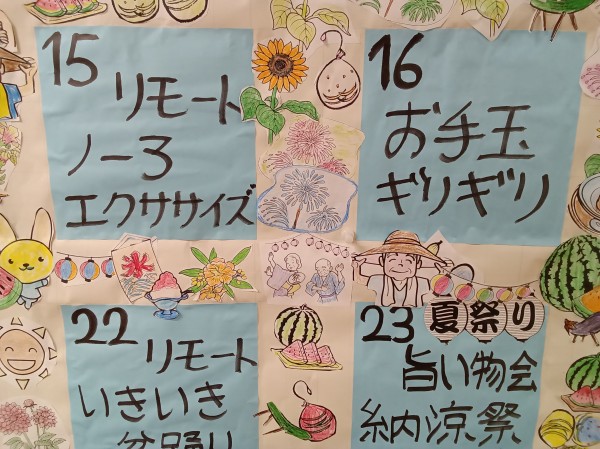 15
リモート
ノー3
エクササイズ
16
お手玉
ギリギリ
22
リモート
いきいき
盆踊り
23
夏祭り
旨い物会
納涼祭